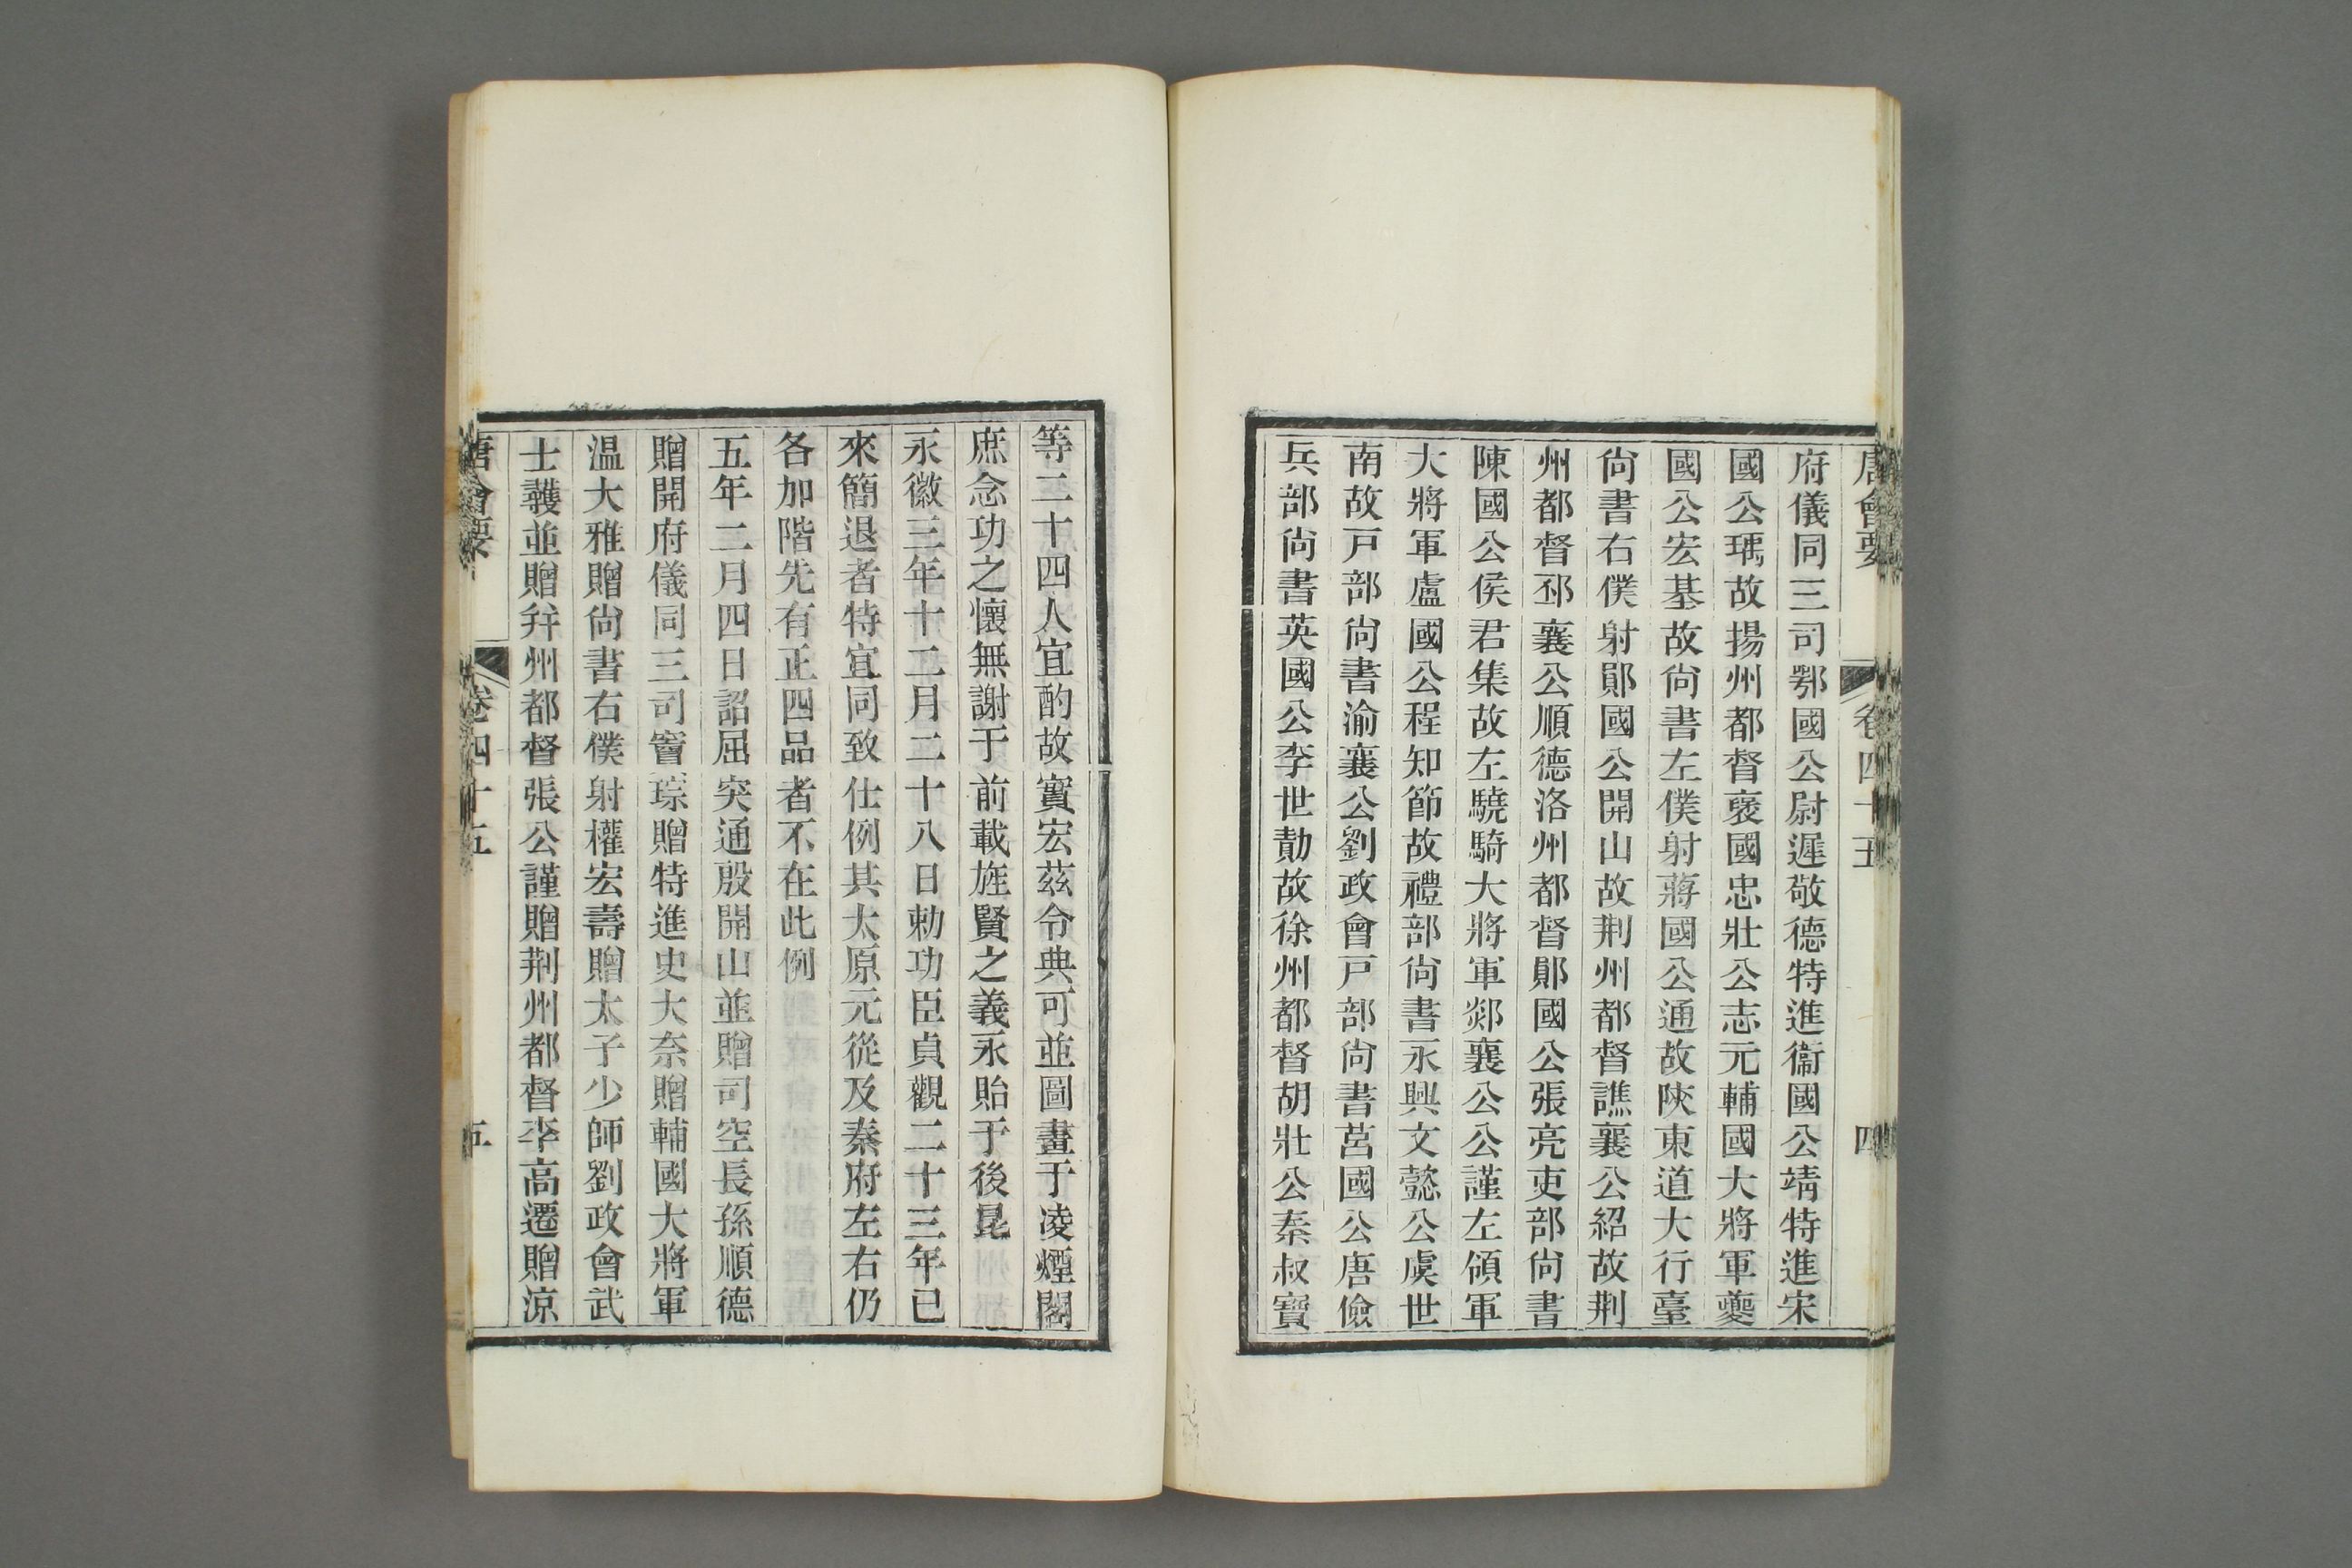 唐會要 卷四十五 四
府儀同三司鄂國公尉遲敬德特進衞國公靖特進宋
國公瑀故揚州都督褒國忠壯公志元輔國大將軍夔
國公宏基故尙書左僕射蔣國公通故陝東道大行臺
尙書右僕射鄖國公開山故荆州都督譙襄公紹故荆
州都督邳襄公順德洛州都督鄖國公張亮吏部尙書
陳國公侯君集故左驍騎大將軍郯襄公公謹左領軍
大將軍盧國公程知節故禮部尙書永興文懿公虞世
南故戸部尙書渝襄公劉政會戸部尙書莒國公唐儉
兵部尙書英國公李世勣故徐州都督胡壯公秦叔寶
等二十四人宜酌故實宏茲令典可並圖畫于凌煙閣
庶念功之懷無謝于前載旌賢之義永貽于後昆
永徽三年十二月二十八日勅功臣貞觀二十三年已
來簡退者特宜同致仕例其太原元從及秦府左右仍
各加階先有正四品者不在此例
五年二月四日詔屈突通殷開山並贈司空長孫順德
贈開府儀同三司竇琮贈特進史大奈贈輔國大將軍
温大雅贈尙書右僕射權宏壽贈太子少師劉政會武
士彠並贈幷州都督張公謹贈荆州都督李高遷贈凉
唐會要 卷四十五 五